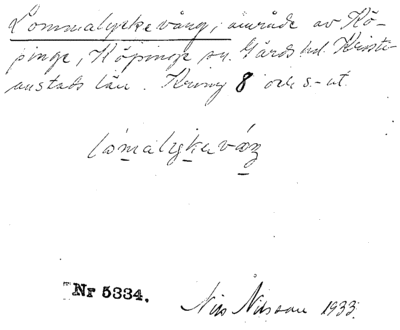 Lommalyckevång, område av Kö-
pinge, Köpinge sn. Gärds hd. Kristi-
anstads län. Kring 8 och s.-ut.
lómalykavåŋ
Nr 5334.
Nils Nilsson 1933.